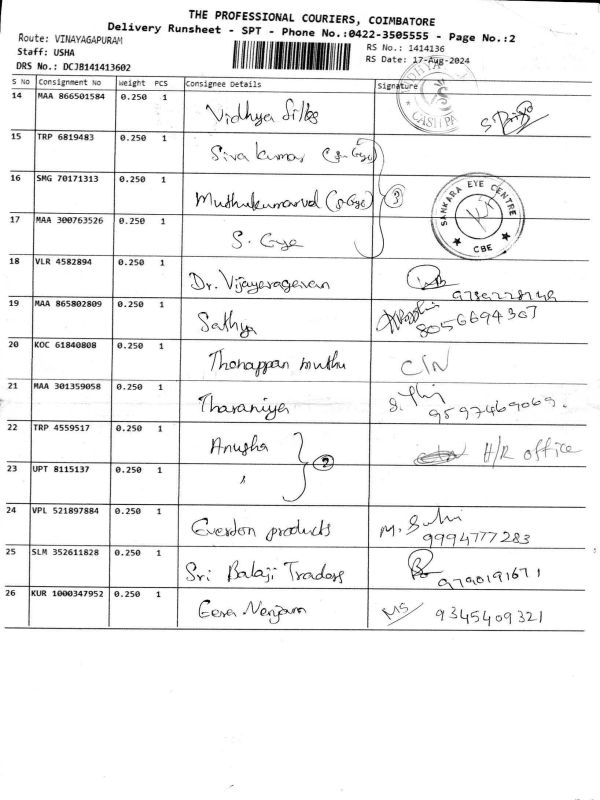 THE PROFESSIONAL COURIERS, COIMBATORE
Delivery Runsheet - SPT - Phone No.:0422-3505555 - Page No.:2
Route: VINAYAGAPURAM
RS No.: 1414136
Staff: USHA
RS Date: 17-Aug-2024
DRS No.: DCJB141413602
S No Consignment No Weight PCS Consignee Details Signature
14 MAA 866501584 0.250 1 Vidhya Silks S. Priya
CASH PA
15 TRP 6819483 0.250 1 Sivakumar (S-Eye)
16 SMG 70171313 0.250 1 Muthukumarvel (S-Eye) 3
SANKARA EYE CENTRE
CBE
17 MAA 300763526 0.250 1 S. Eye
18 VLR 4582894 0.250 1 Dr. Vijayaragavan
19 MAA 865802809 0.250 1 Sathya 8056694307
20 KOC 61840808 0.250 1 Thonappan muthu C/N
21 MAA 301359058 0.250 1 Tharaniya 9597469069.
22 TRP 4559517 0.250 1 Anusha H/R office
23 UPT 8115137 0.250 1 2
24 VPL 521897884 0.250 1 Everdon products 9994777283
25 SLM 352611828 0.250 1 Sri Balaji Traders 9790191671
26 KUR 1000347952 0.250 1 Eera Nenjam MS 9345409321